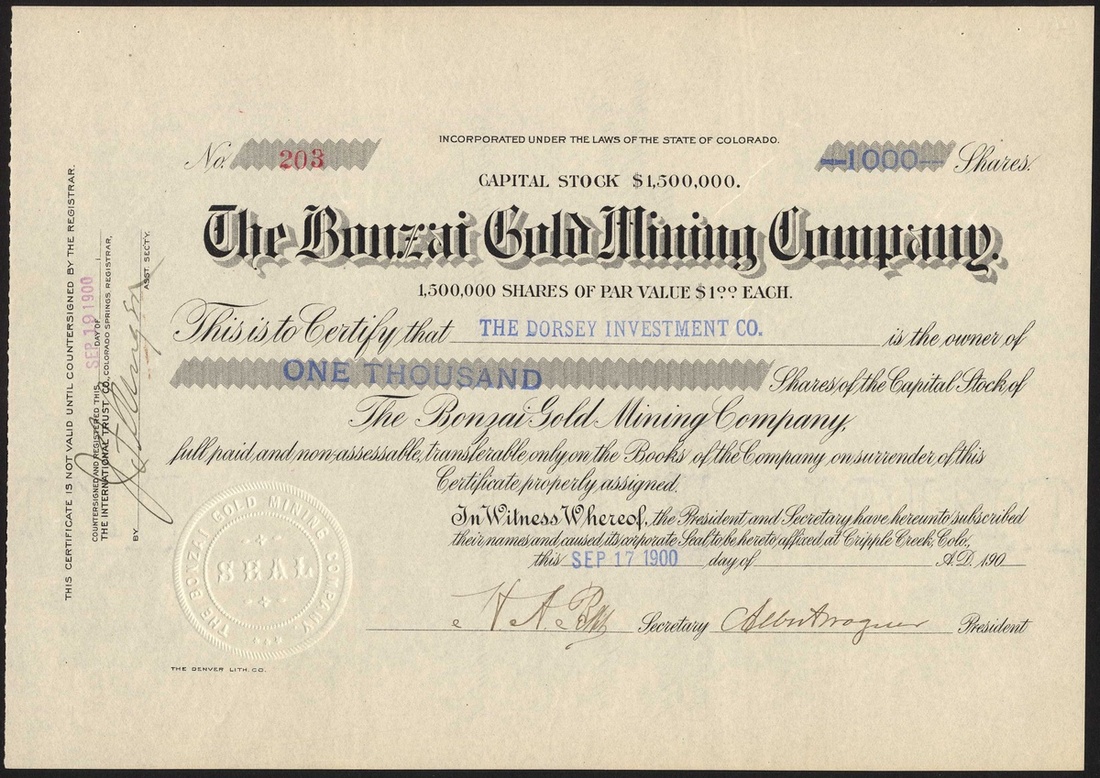 INCORPORATED UNDER THE LAWS OF THE STATE OF COLORADO.
No. 203
—1000— Shares.
CAPITAL STOCK $1,500,000.
The Bonzai Gold Mining Company.
1,500,000 SHARES OF PAR VALUE $1.00 EACH.
This is to Certify that THE DORSEY INVESTMENT CO. is the owner of
ONE THOUSAND Shares of the Capital Stock of
The Bonzai Gold Mining Company,
full paid and non-assessable, transferable only on the Books of the Company on surrender of this
Certificate properly assigned.
In Witness Whereof, the President and Secretary have hereunto subscribed
their names and caused its corporate Seal to be hereto affixed at Cripple Creek, Colo.,
this SEP 17 1900 day of A.D. 190
Secretary Albert Wagner President
THE BONZAI GOLD MINING COMPANY
SEAL
THE DENVER LITH. CO.
THIS CERTIFICATE IS NOT VALID UNTIL COUNTERSIGNED BY THE REGISTRAR.
COUNTERSIGNED AND REGISTERED THIS SEP 19 1900 DAY OF
THE INTERNATIONAL TRUST CO., COLORADO SPRINGS, REGISTRAR,
BY ASST. SECTY.